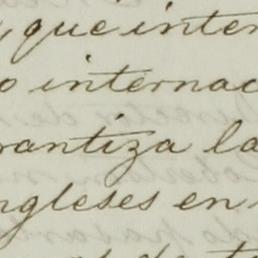 , que inter
o internac
rantiza la
ngleses en